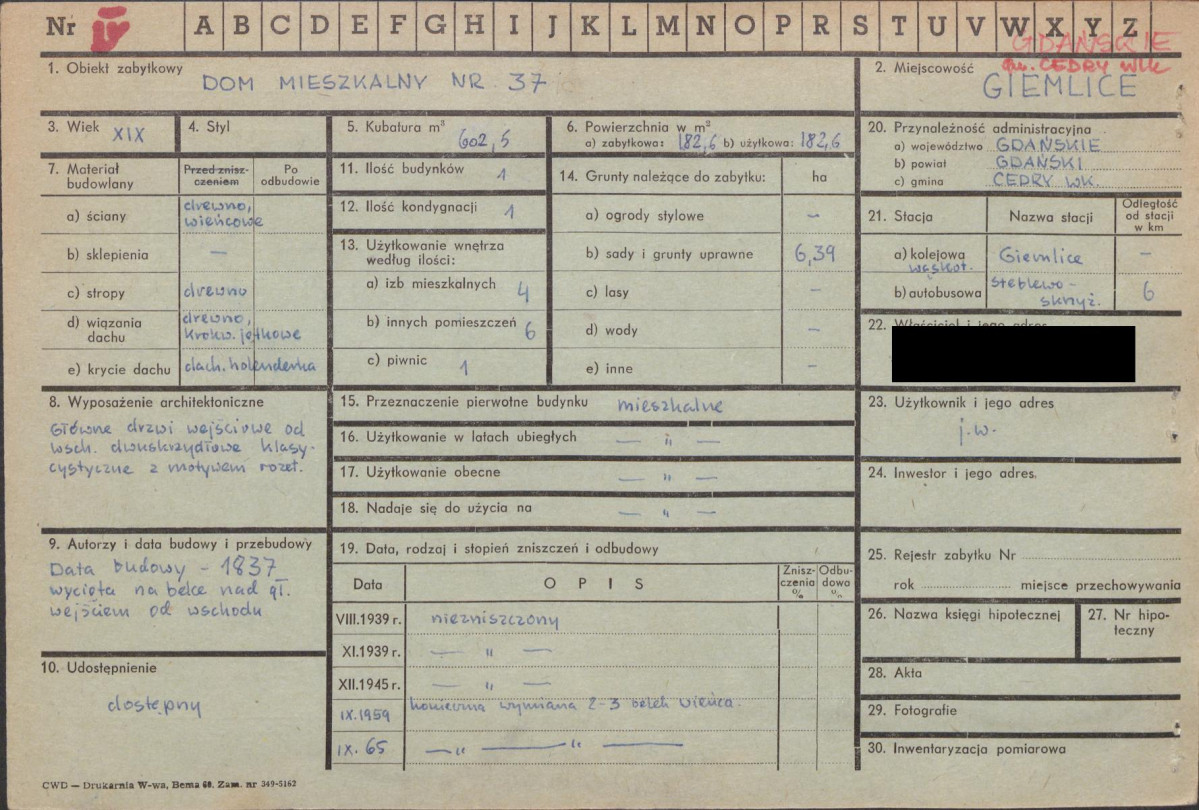 Nr IV A B C D E F G H I J K L M N O P R S T U V W X Y Z
GDAŃSKIE
gm. CEDRY WLK
1. Obiekt zabytkowy
DOM MIESZKALNY NR 37
2. Miejscowość
GIEMLICE
3. Wiek XIX
4. Styl
5. Kubatura m³ 602,5
6. Powierzchnia w m²
a) zabytkowa: 182,6 b) użytkowa: 182,6
7. Materiał budowlany
Przed zniszczeniem
Po odbudowie
a) ściany drewno, wieńcowe
b) sklepienia —
c) stropy drewno
d) wiązania dachu drewno, krokw. jętkowe
e) krycie dachu dach. holenderka
8. Wyposażenie architektoniczne
Główne drzwi wejściowe od
wsch. dwuskrzydłowe klasy-
cystyczne z motywem rozet.
9. Autorzy i data budowy i przebudowy
Data budowy – 1837
wycięta na belce nad gł.
wejściem od wschodu
10. Udostępnienie
dostępny
11. Ilość budynków 1
12. Ilość kondygnacji 1
13. Użytkowanie wnętrza
według ilości:
a) izb mieszkalnych 4
b) innych pomieszczeń 6
c) piwnic 1
14. Grunty należące do zabytku: ha
a) ogrody stylowe –
b) sady i grunty uprawne 6,39
c) lasy –
d) wody –
e) inne –
15. Przeznaczenie pierwotne budynku mieszkalne
16. Użytkowanie w latach ubiegłych — „ —
17. Użytkowanie obecne — „ —
18. Nadaje się do użycia na — „ —
19. Data, rodzaj i stopień zniszczeń i odbudowy
Data O P I S Znisz-czenia % Odbu-dowa %
VIII.1939 r. niezniszczony
XI.1939 r. — „ —
XII.1945 r. — „ —
IX.1959 konieczna wymiana 2-3 belek wieńca.
IX. 65 — „ — „ —
20. Przynależność administracyjna
a) województwo GDAŃSKIE
b) powiat GDAŃSKI
c) gmina CEDRY WK.
21. Stacja Nazwa stacji Odległość od stacji w km
a) kolejowa wąskot. Giemlice –
b) autobusowa Steblewo - skrzyż. 6
22. Właściciel i jego adres
23. Użytkownik i jego adres
j.w.
24. Inwestor i jego adres.
25. Rejestr zabytku Nr
rok miejsce przechowywania
26. Nazwa księgi hipotecznej
27. Nr hipo-
teczny
28. Akta
29. Fotografie
30. Inwentaryzacja pomiarowa
CWD — Drukarnia W-wa, Bema 60, Zam. nr 349-5162